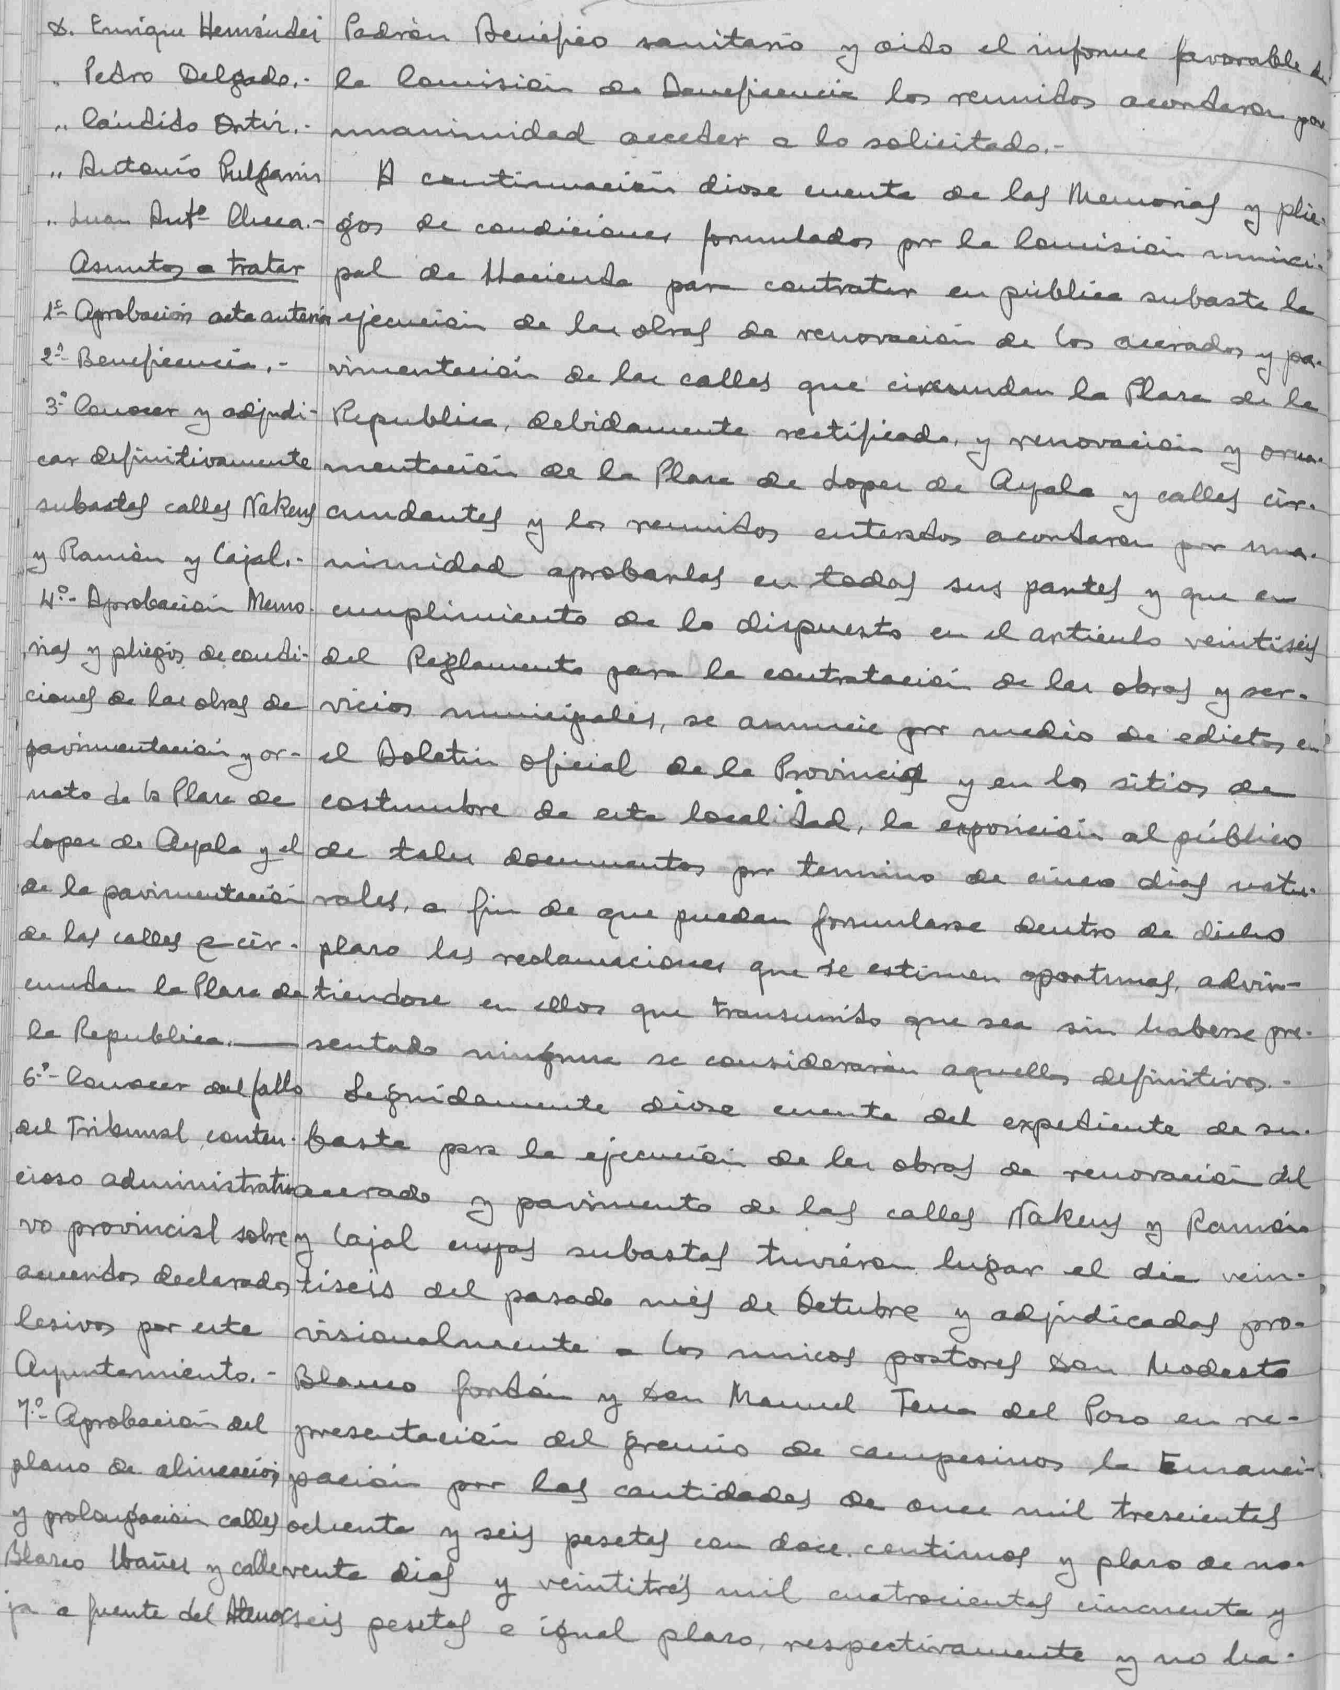 D. Enrique Hernández
" Pedro Delgado.-
" Cándido Ortiz.-
" Antonio Pulgarin
" Juan Antº Checa.-
Asuntos a tratar
1º- Aprobación acta anterior
2º- Beneficencia.-
3º- Conocer y adjudi-
car definitivamente
subastas calles Nakens
y Ramón y Cajal.-
4º- Aprobación Memo-
rias y pliegos de condi-
ciones de las obras de
pavimentación y or-
nato de la Plaza de
Lopez de Ayala y el
de la pavimentación
de las calles q cir-
cundan la Plaza de
la Republica.—
6º- Conocer del fallo
del Tribunal conten-
cioso administrati-
vo provincial sobre
acuerdos declarados
lesivos por este
Ayuntamiento.-
7º- Aprobación del
plano de alineación
y prolongación calles
Blasco Ibañez y calle
ja a fuente del
Padrón Benéfico sanitario y oido el informe favorable de
la Comisión de Beneficencia los reunidos acordaron por
unanimidad acceder a lo solicitado.-
A continuación diose cuenta de las Memorias y plie-
gos de condiciones formulados por la Comisión munici-
pal de Hacienda para contratar en pública subasta la
ejecución de las obras de renovación de los acerados y pa-
vimentación de las calles que circundan la Plaza de la
Republica, debidamente rectificada, y renovación y orna-
mentación de la Plaza de Lopez de Ayala y calles cir-
cundantes y los reunidos enterados acordaron por una-
nimidad aprobarlas en todas sus partes y que en
cumplimiento de lo dispuesto en el artículo veintiseis
del Reglamento para la contratación de las obras y ser-
vicios municipales, se anuncie por medio de edictos, en
el Boletin oficial de la Provincia y en los sitios de
costumbre de esta localidad, la exposición al público
de tales documentos por termino de cinco dias natu-
rales, a fin de que puedan formularse dentro de dicho
plazo las reclamaciones que se estimen oportunas, advir-
tiendose en ellos que transcurrido que sea sin haberse pre-
sentado ninguna se considerarán aquellos definitivos.-
Seguidamente diose cuenta del expediente de su-
basta para la ejecución de las obras de renovación del
acerado y pavimento de las calles Nakens y Ramón
y Cajal cuyas subastas tuvieron lugar el dia vein-
tiseis del pasado mes de Octubre y adjudicadas pro-
visionalmente a los unicos postores Don Modesto
Blanco Gordón y Don Manuel Tena del Pozo en re-
presentación del gremio de campesinos la Emanci-
pación por las cantidades de once mil trescientas
ochenta y seis pesetas con doce centimos y plazo de no-
venta dias y veintitrés mil cuatrocientas cincuenta y
seis pesetas e igual plazo, respectivamente y no ha-